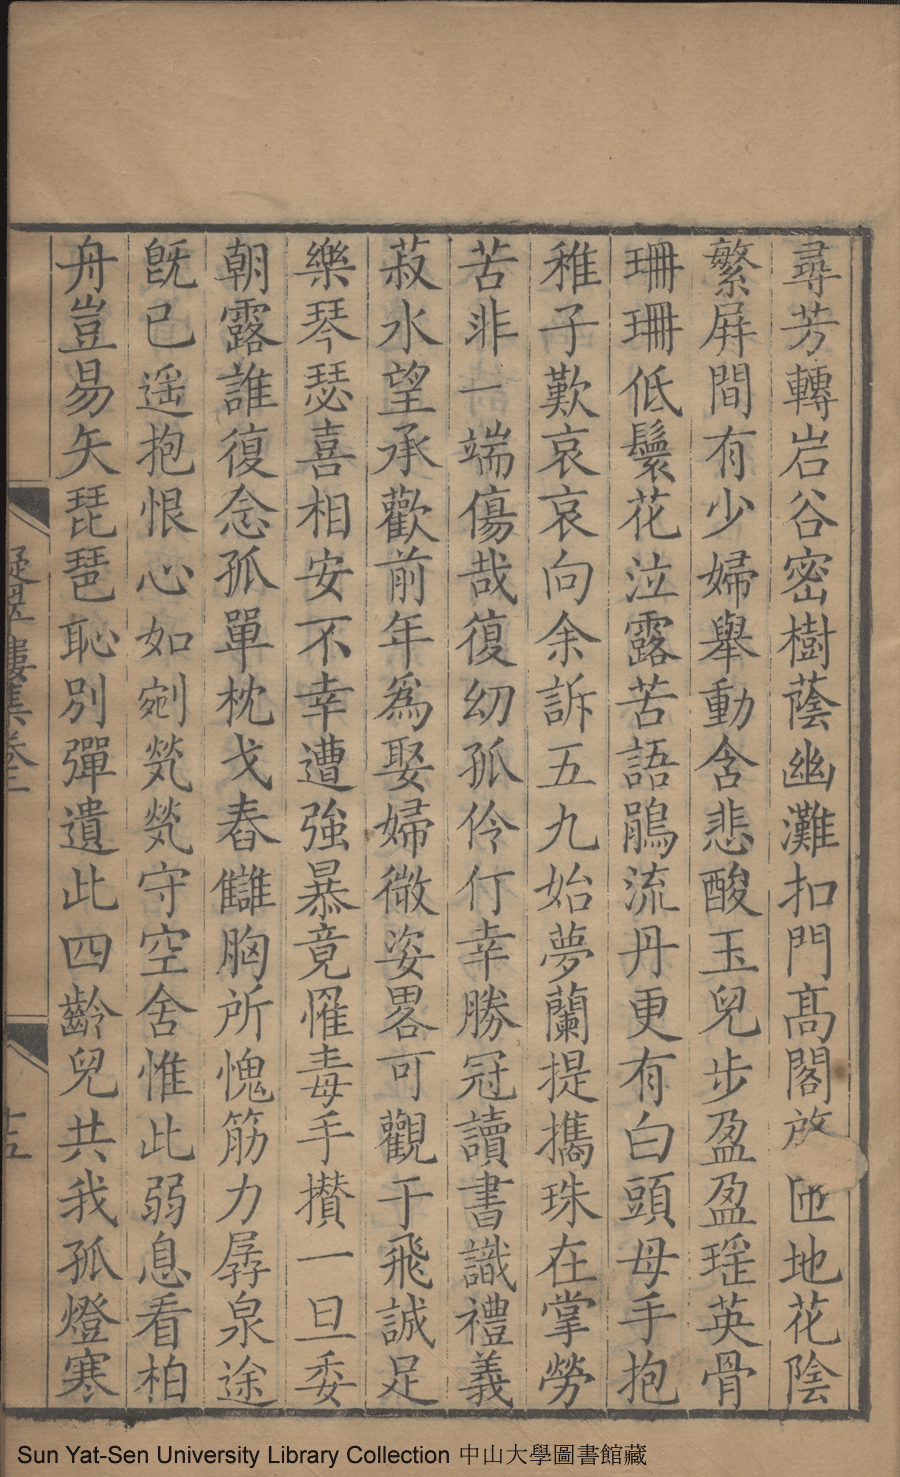 尋芳轉岩谷密樹蔭幽灘扣門髙閣放匝地花陰
繁屛間有少婦舉動含悲酸玉兒步盈盈瑤英骨
珊珊低鬟花泣露苦語鵑流丹更有白頭母手抱
稚子歎哀哀向余訴五九始夢蘭提攜珠在掌勞
苦非一端傷哉復幼孤伶仃幸勝冠讀書識禮義
菽水望承歡前年爲娶婦微姿畧可觀于飛誠足
樂琴瑟喜相安不幸遭強暴竟罹毒手攢一旦委
朝露誰復念孤單枕戈舂讎胸所愧筋力孱泉途
旣已遥抱恨心如剜煢煢守空舍惟此弱息看柏
舟豈易矢琵琶恥別彈遺此四齡兒共我孤燈寒
樓集卷二
十五
Sun Yat-Sen University Library Collection 中山大學圖書館藏